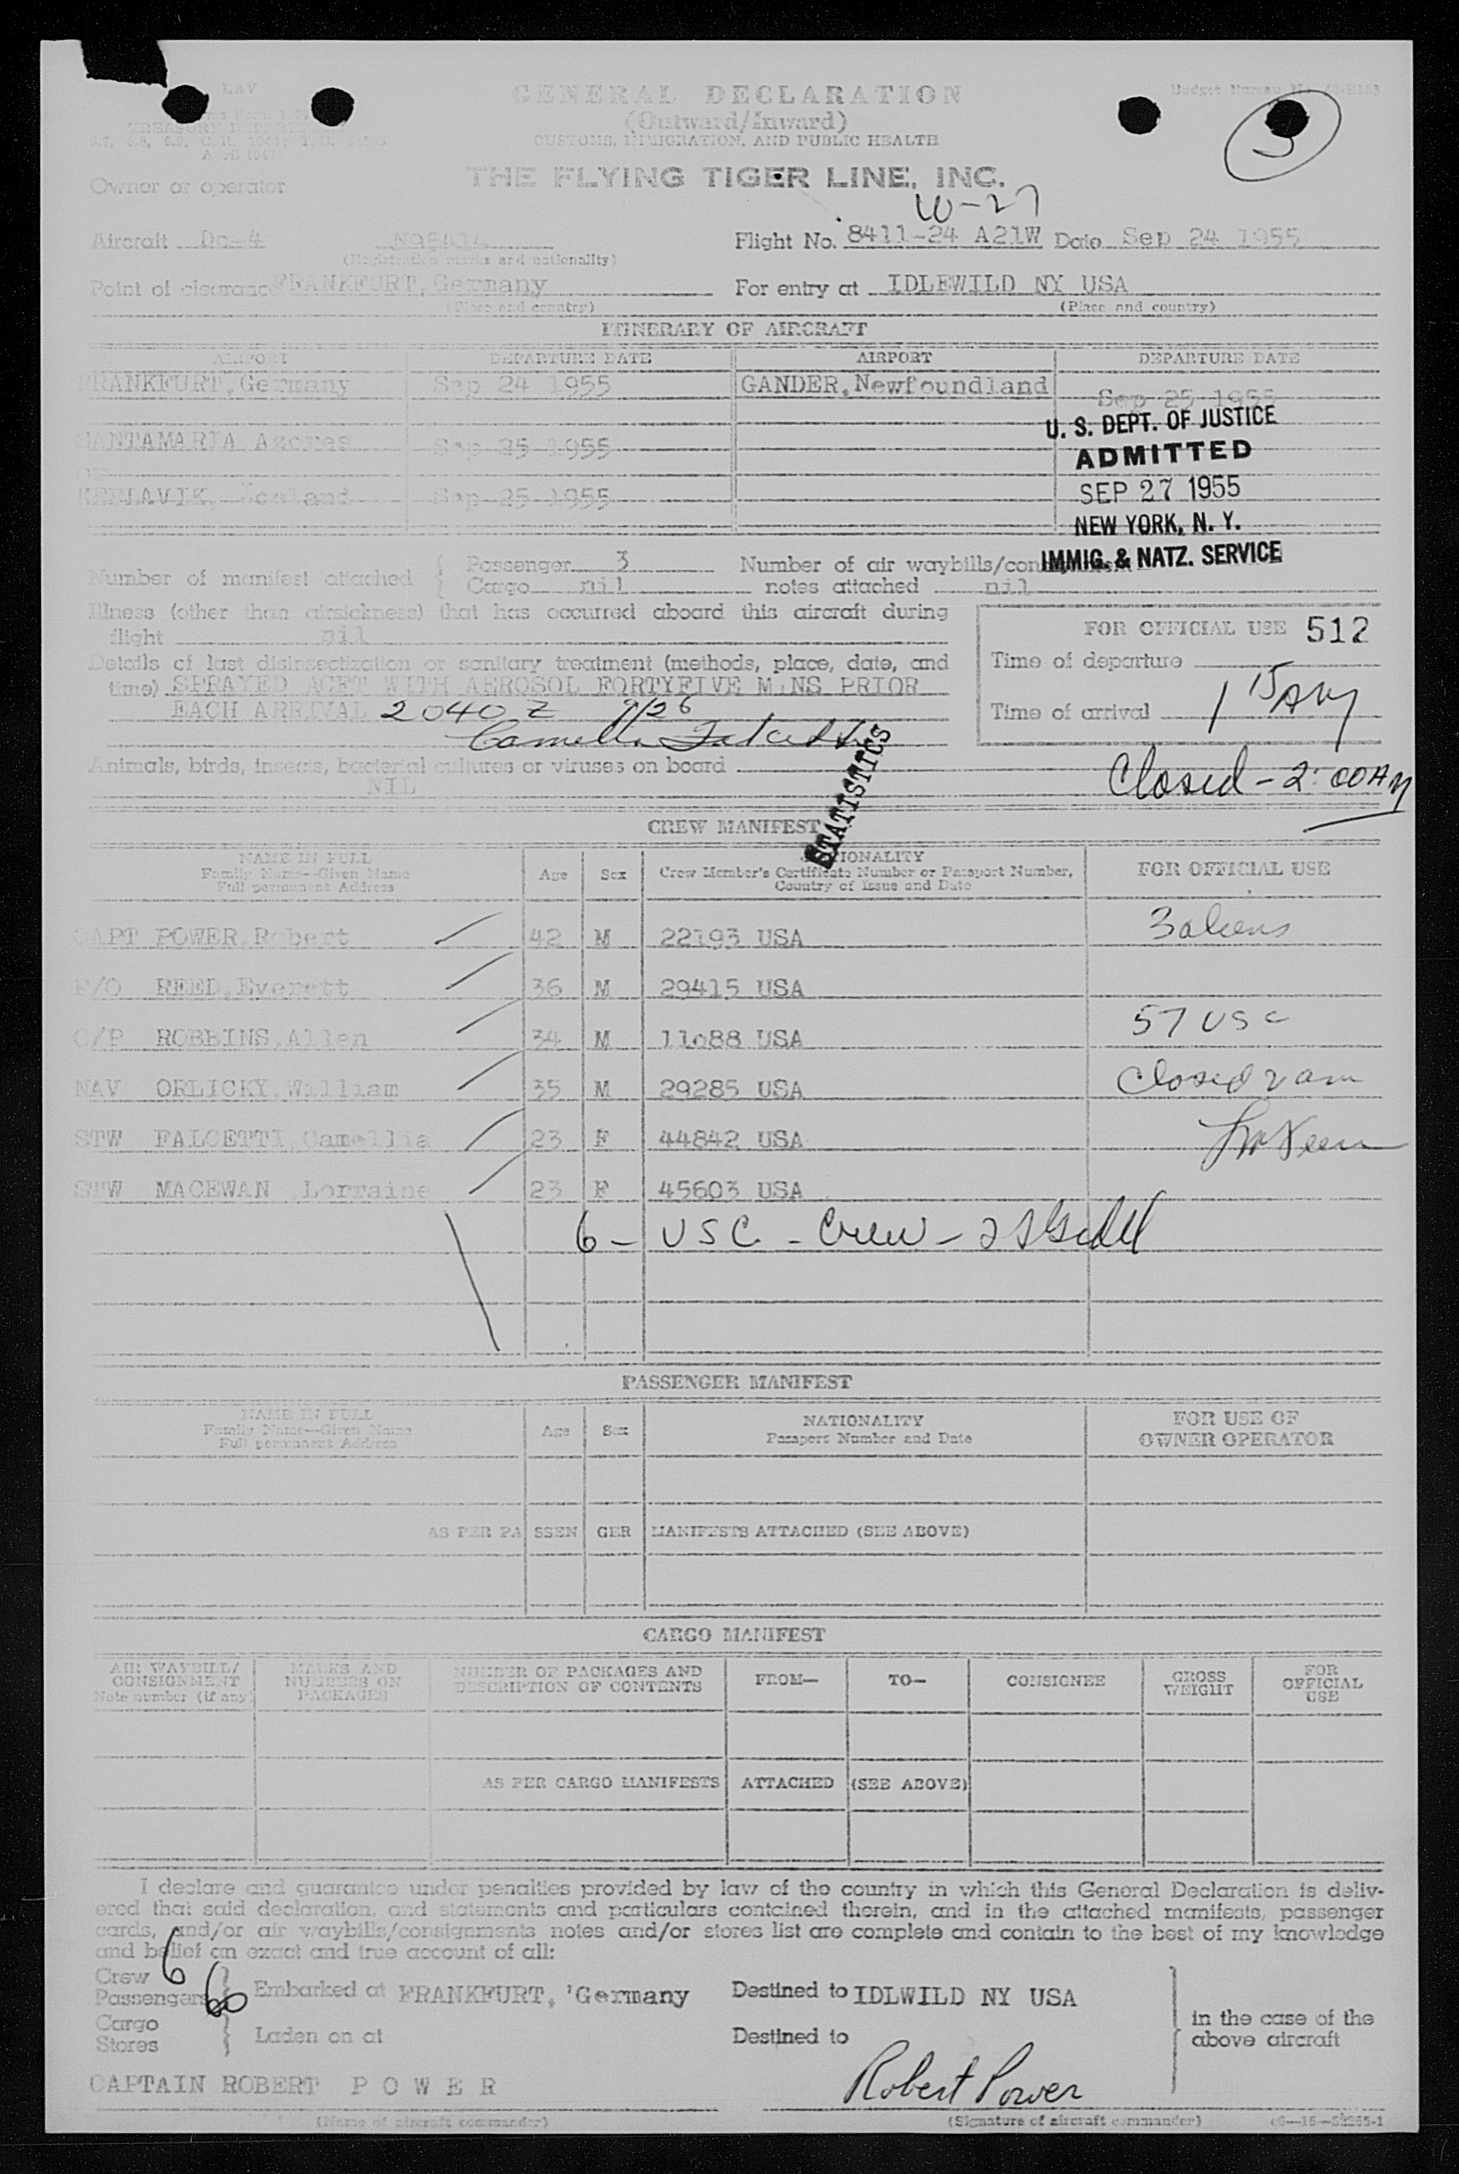 GENERAL DECLARATION
(Outward/Inward)
CUSTOMS, IMMIGRATION, AND PUBLIC HEALTH
THE FLYING TIGER LINE, INC.
Owner or operator
Aircraft Dc-4
Flight No. 8411-24 A21W Date Sep 24 1955
(Registration marks and nationality)
Point of clearance FRANKFURT, Germany For entry at IDLEWILD NY USA
(Place and country) (Place and country)
ITINERARY OF AIRCRAFT
AIRPORT DEPARTURE DATE AIRPORT DEPARTURE DATE
FRANKFURT, Germany Sep 24 1955 GANDER, Newfoundland Sep 25 1955
SANTAMARIA Azores Sep 25 1955
KEFLAVIK, Iceland Sep 25 1955
U. S. DEPT. OF JUSTICE
ADMITTED
SEP 27 1955
NEW YORK, N. Y.
IMMIG. & NATZ. SERVICE
Number of manifest attached { Passenger 3 Number of air waybills/
Cargo nil notes attached nil
Illness (other than airsickness) that has occurred aboard this aircraft during
flight nil
FOR OFFICIAL USE 512
Details of last disinsectization or sanitary treatment (methods, place, date, and
time) SPRAYED ACFT WITH AEROSOL FORTYFIVE MINS PRIOR
EACH ARRIVAL 2040 Z 9/26
Time of departure
Time of arrival 1 15 AM
Animals, birds, insects, bacterial cultures or viruses on board
NIL
Closed - 2:00 AM
STATISTICS
CREW MANIFEST
NAME IN FULL
Family Name--Given Name
Full permanent Address
Age Sex
NATIONALITY
Crew Member's Certificate Number or Passport Number,
Country of Issue and Date
FOR OFFICIAL USE
CAPT POWER, Robert 42 M 22193 USA 3 aliens
F/O REED, Everett 36 M 29415 USA
O/P ROBBINS, Allen 34 M 11088 USA 57 USC
NAV ORLICKY, William 35 M 29285 USA Closed 2 am
STW FALCETTI, Camellia 23 F 44842 USA
STW MACEWAN, Lorraine 23 F 45603 USA
6 - USC - Crew -
PASSENGER MANIFEST
NAME IN FULL
Family Name--Given Name
Full permanent Address
Age Sex
NATIONALITY
Passport Number and Date
FOR USE OF
OWNER OPERATOR
AS PER PASSENGER MANIFESTS ATTACHED (SEE ABOVE)
CARGO MANIFEST
AIR WAYBILL/
CONSIGNMENT
Note number (if any)
MARKS AND
NUMBERS ON
PACKAGES
NUMBER OF PACKAGES AND
DESCRIPTION OF CONTENTS
FROM— TO— CONSIGNEE
GROSS
WEIGHT
FOR
OFFICIAL
USE
AS PER CARGO MANIFESTS ATTACHED (SEE ABOVE)
I declare and guarantee under penalties provided by law of the country in which this General Declaration is deliv-
ered that said declaration, and statements and particulars contained therein, and in the attached manifests, passenger
cards, and/or air waybills/consignments notes and/or stores list are complete and contain to the best of my knowledge
and belief an exact and true account of all:
Crew 6
Passengers 60 } Embarked at FRANKFURT, Germany Destined to IDLWILD NY USA
Cargo
Stores } Laden on at Destined to
in the case of the
above aircraft
CAPTAIN ROBERT P O W E R Robert Power
(Name of aircraft commander) (Signature of aircraft commander)